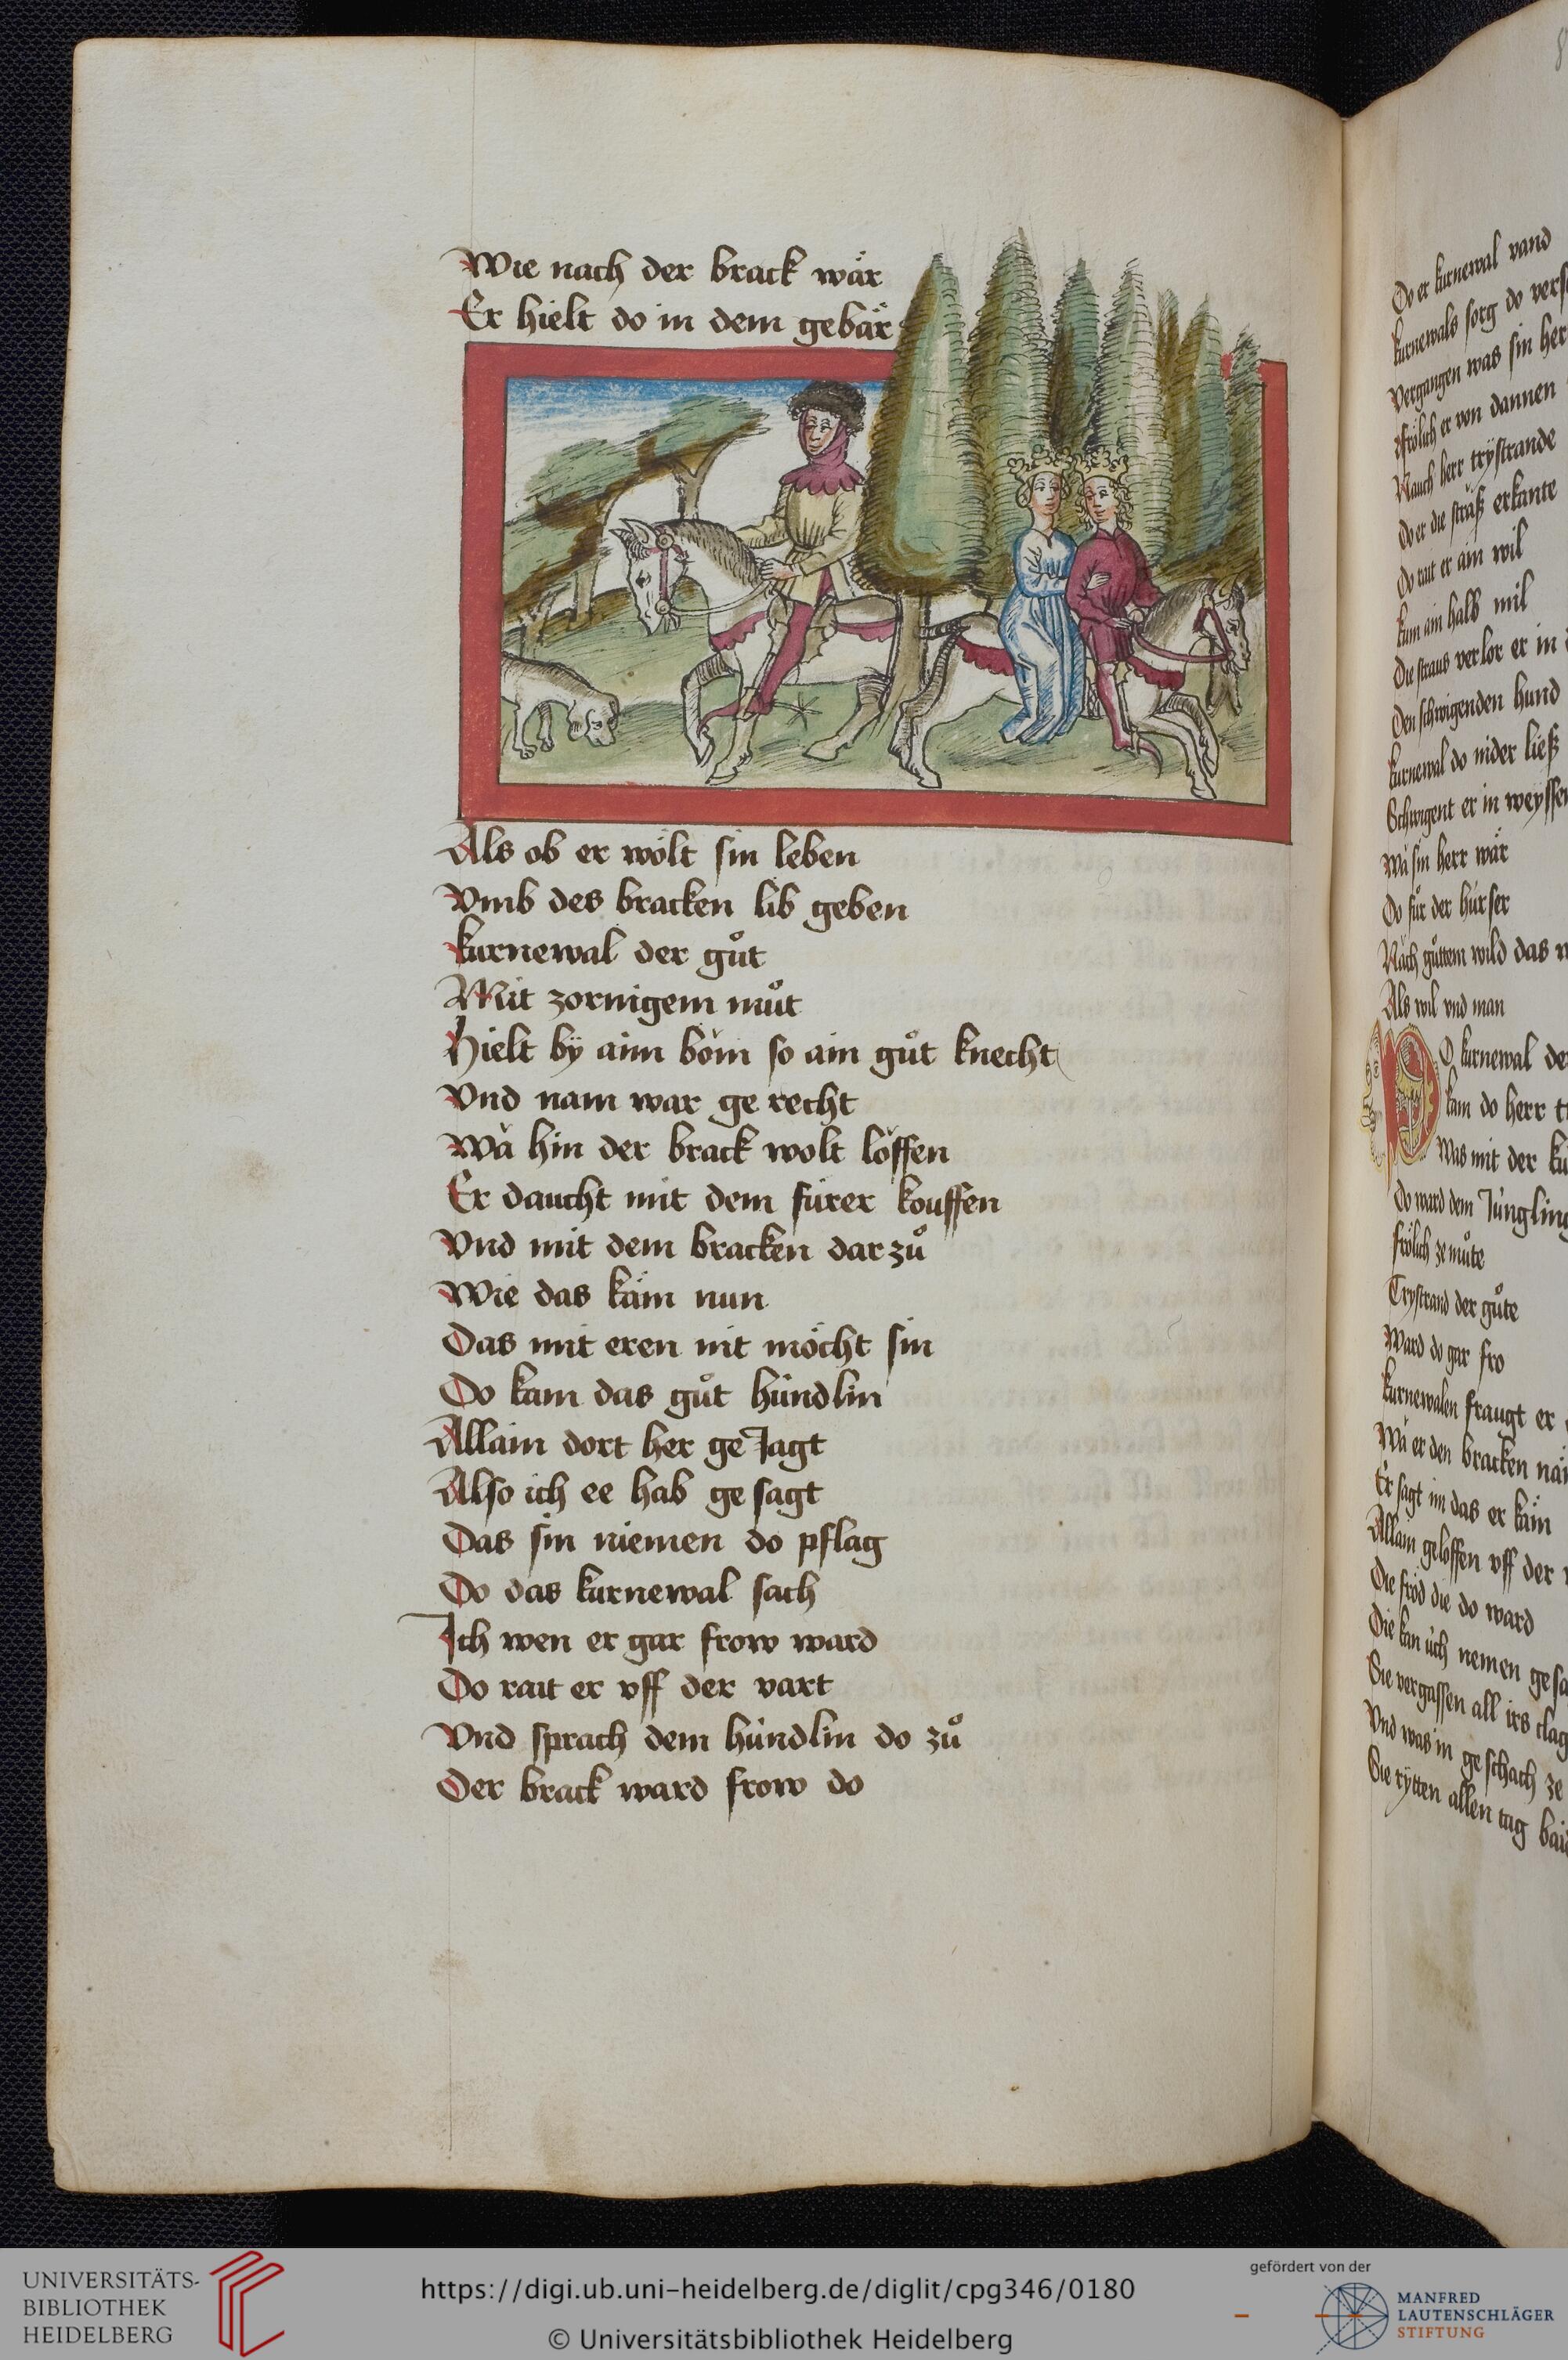 Wie nach der brack wär
Er hielt do in dem gebär
Als ob er wölt sin leben
Vmb des bracken lib geben
kurnewal der gůt
Mit zornigem můt
Hielt bÿ aim böm so ain gůt knecht
Vnd nam war ge recht
Wä hin der brack wolt löffen
Er daucht mit dem fürer kouffen
Vnd mit dem bracken dar zů
Wie das käm nun
Das mit eren nit möcht sin
Do kam das gůt hündlin
Allain dort her ge Jagt
Also ich ee hab ge sagt
Das sin niemen do pflag
Do das kurnewal sach
Ich wen er gar frow ward
Do rait er vff der vart
Vnd sprach dem hündlin do zů
Der brack ward frow do
Do er kurnewal vand
kurnewals sorg do
Vergangen was sin
frölich er von dannen
Nauch herr trÿstrande
Do er die sträß erkante
Do rait er ain wil
kum ain halb mil
Die straus verlor er in
Den schwigenden hund
kurnewal do nider ließ
Schwigent er in
Wä sin herr wär
Do fůr der hurser
Näch gůttem wild das
Als wil vnd man
DO kurnewal
kam do herr
Was mit der
Do ward dem
frölich ze můte
Trystrand der gůte
Ward do gar fro
kurnewalen fraugt er
Wä er den bracken
Er sagt im das er käm
Allain geloffen vff der
Die fröd die do ward
Die kan üch nemen
Sie vergassen all irs
Vnd was in ge schach ze
Sie rÿtten allen tag
UNIVERSITÄTS-
BIBLIOTHEK
HEIDELBERG
https://digi.ub.uni-heidelberg.de/diglit/cpg346/0180
© Universitätsbibliothek Heidelberg
gefördert von der
MANFRED
LAUTENSCHLÄGER
STIFTUNG